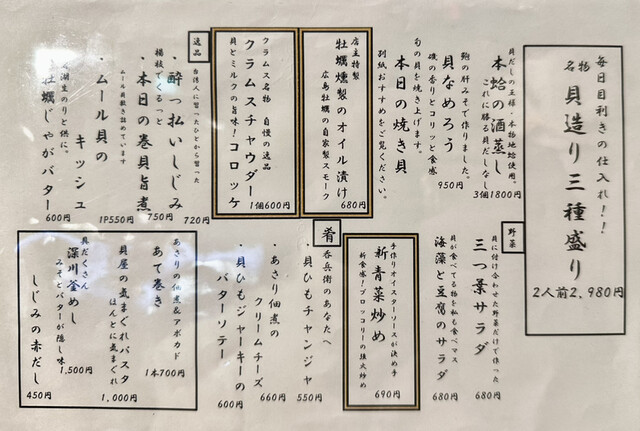 毎日目利きの仕入れ!!
名物 貝造り三種盛り
2人前2,980円
貝だしの王様・本物地蛤使用、
本蛤の酒蒸し
これに勝る貝だしなし
3個1800円
鮑の肝みそで作りました。
貝なめろう
磯の香りとコリッと食感
950円
旬の貝を焼き上げます。
本日の焼き貝
別紙おすすめをご覧ください。
店主特製
牡蠣燻製のオイル漬け
広島牡蠣の自家製スモーク
680円
クラムス名物 自慢の逸品
クラムスチャウダーコロッケ
貝とミルクの旨味!
1個600円
逸品
台湾人に習ったひとから習った
・酔っ払いしじみ
720円
楊枝でくるっと
・本日の巻貝旨煮
750円
ムール貝敷き詰めています
・ムール貝のキッシュ
1P550円
湖里のりと供に。
牡蠣じゃがバター
600円
野菜
貝に付け合わせた野菜だけで作った
三つ葉サラダ
680円
貝が食べてる物を私も食べマス
海藻と豆腐のサラダ
680円
手作りオイスターソースが決め手
新青菜炒め
新食感!ブロッコリーの強火炒め
690円
肴
呑兵衛のあなたへ
・貝ひもチャンジャ
550円
・あさり佃煮の
クリームチーズ
660円
・貝ひもジャーキーの
バターソテー
600円
あさりの佃煮&アボカド
あて巻き
1本700円
貝屋の気まぐれパスタ
ほんとに気まぐれ
1,000円
貝だくさん
深川釜めし
みそとバターが隠し味
1,500円
しじみの赤だし
450円